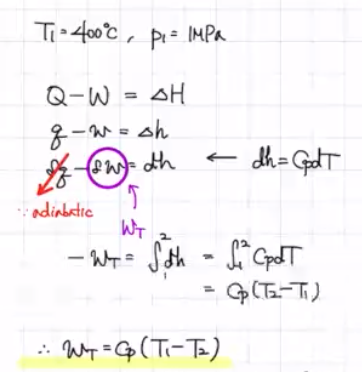 T₁=400°C, p₁=1MPa
Q-W = ΔH
q-w = Δh
δq-δw=dh ← dh=CpdT
∵adiabatic
W_T
-W_T = ∫₁²dh = ∫₁²CpdT
= Cp(T₂-T₁)
∴ W_T=Cp(T₁-T₂)